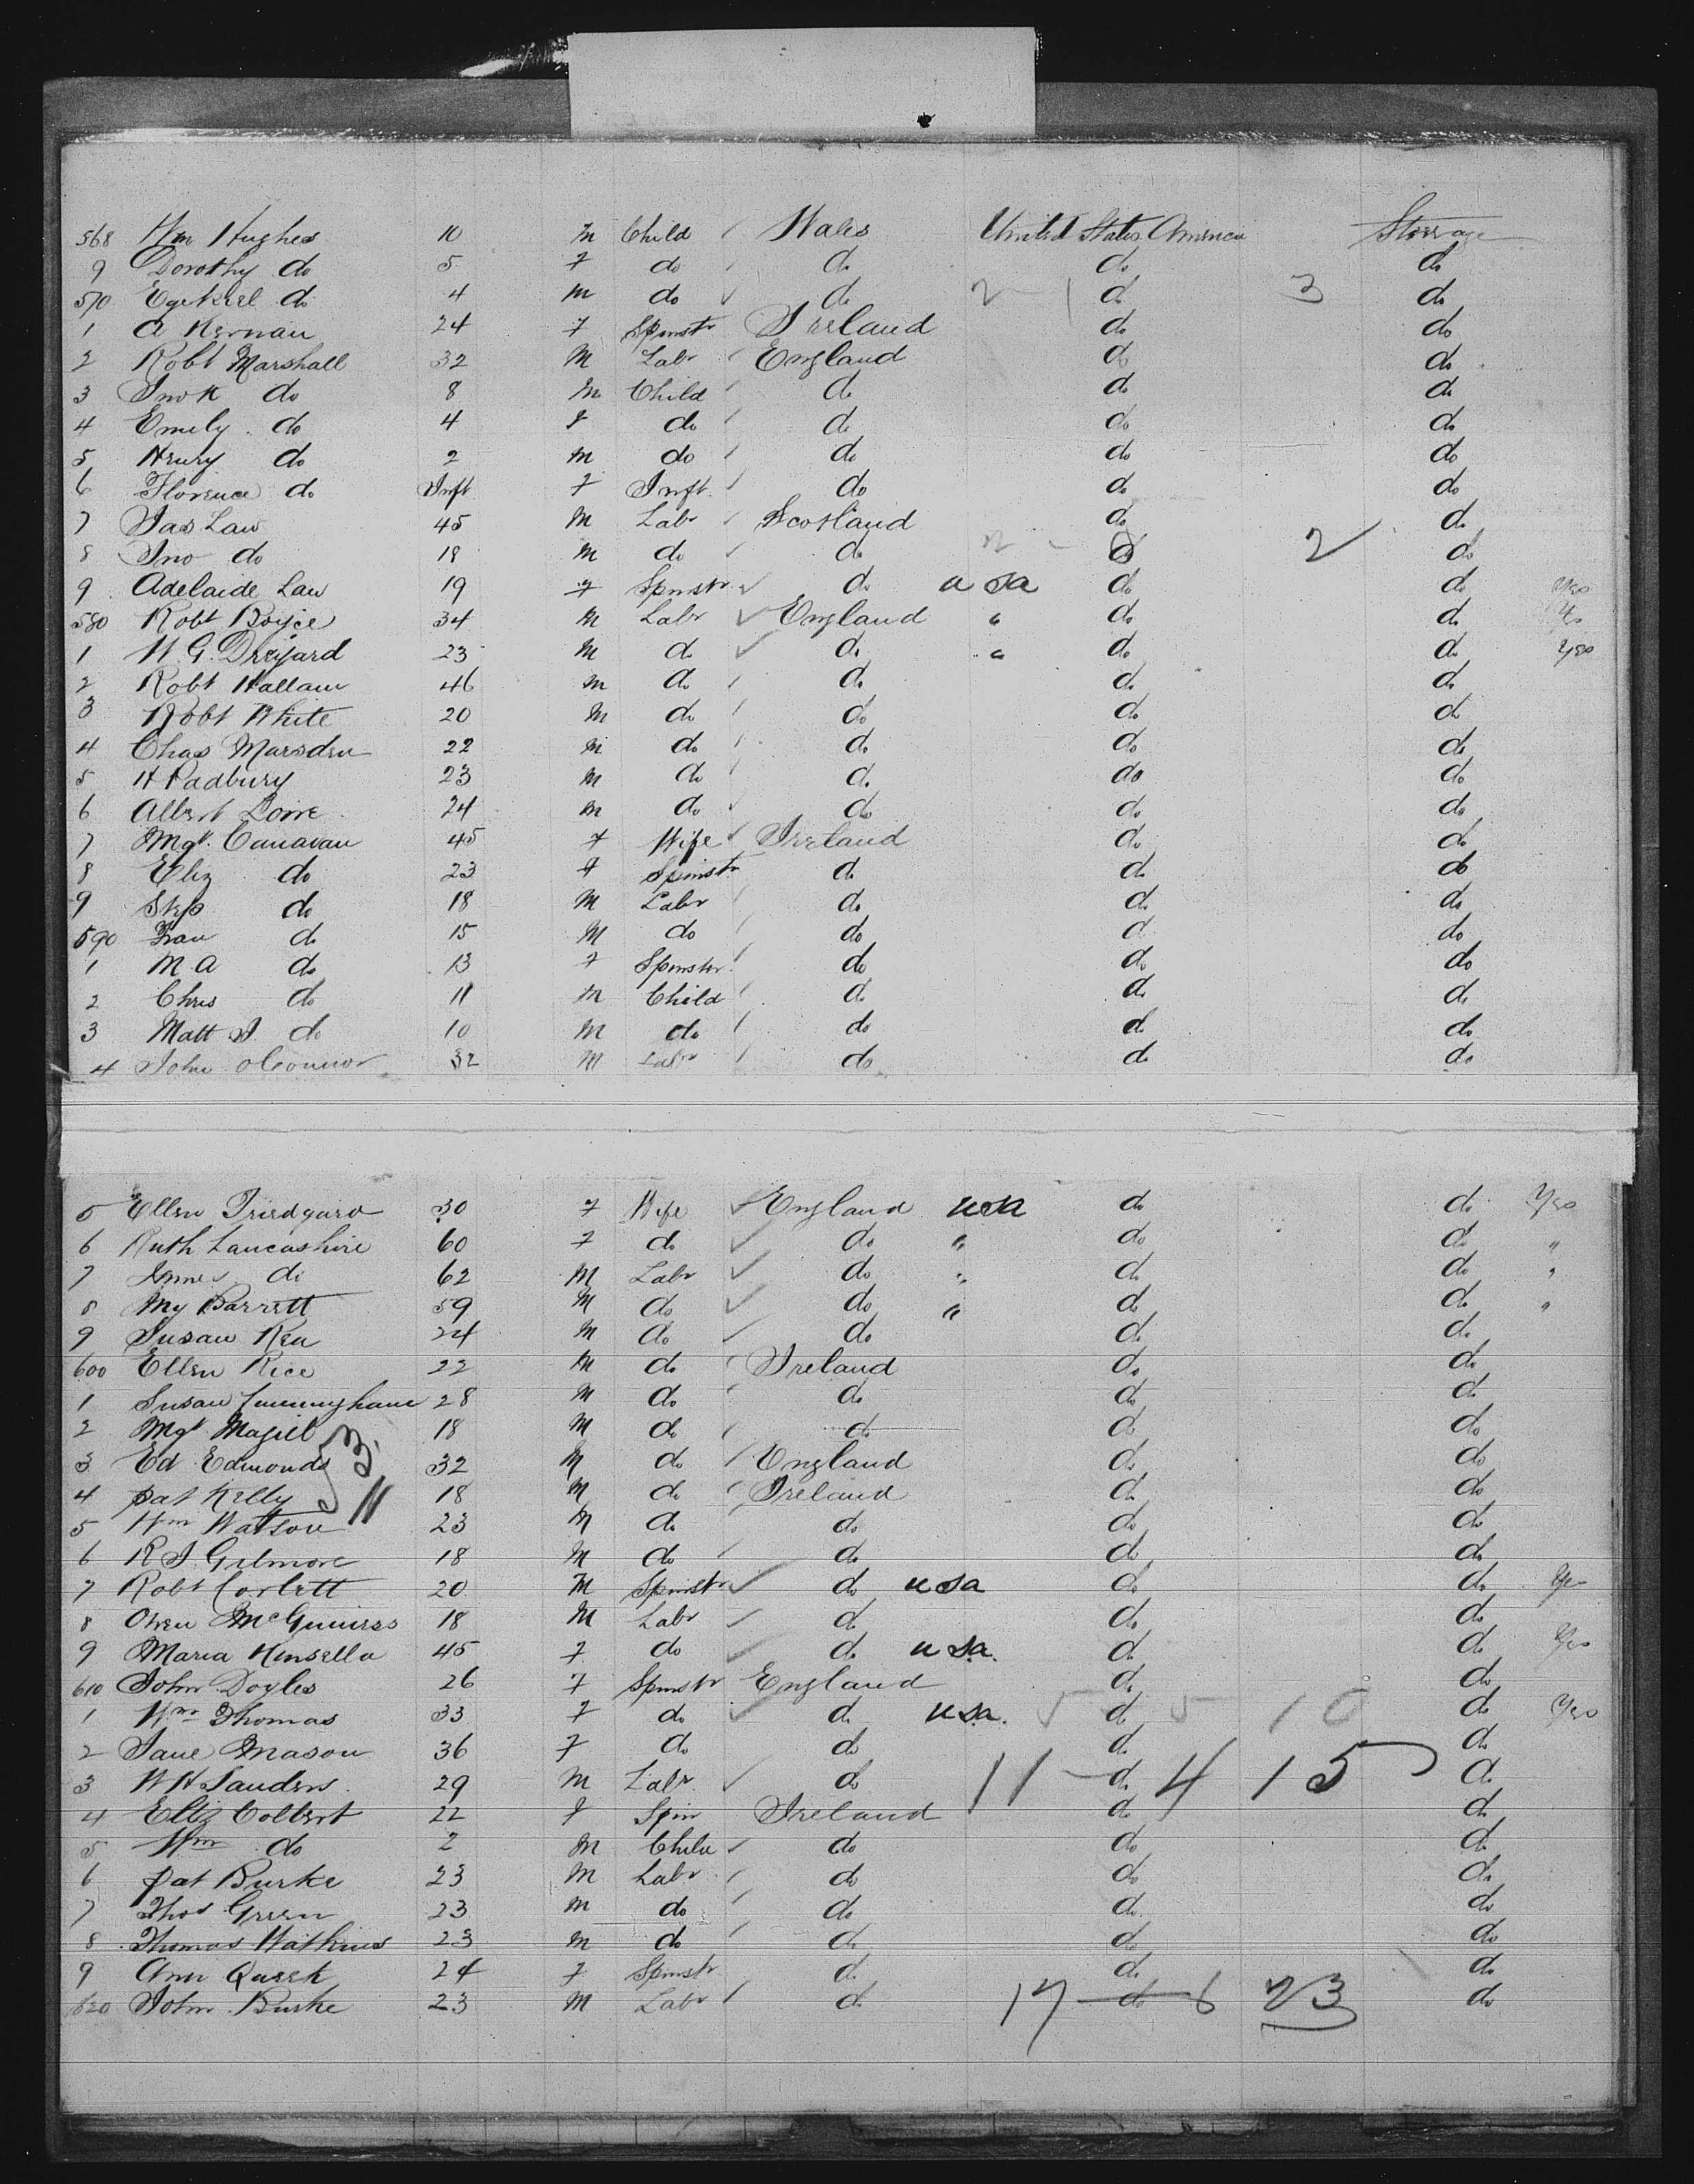 568 Wm Hughes 10 m Child Wales United States America Steerage
9 Dorothy do 5 f do do do do
570 Ezekiel do 4 m do do 2 1 do 3 do
1 A Kernan 24 f Spinstr Ireland do do
2 Robt Marshall 32 M Labr England do do
3 Jno H do 8 m Child do do do
4 Emily do 4 f do do do do
5 Henry do 2 m do do do do
6 Florence do Inft f Inft do do do
7 Jas Law 45 M Labr Scotland do do
8 Jno do 18 m do do do 2 do
9 Adelaide Law 19 f Spinstr do usa do do yes
580 Robt Boyce 34 m Labr England " do do yes
1 W. G. 23 m do do " do do yes
2 Robt Hallam 46 m do do do do
3 Robt White 20 m do do do do
4 Chas Marsden 22 m do do do do
5 H Padbury 23 m do do do do
6 Albert Lowe 24 m do do do do
7 Mgt Canavan 45 f Wife Ireland do do
8 Eliz do 23 f Spinstr do do do
9 Step do 18 M Labr do do do
590 Fran do 15 M do do do do
1 M A do 13 f Spinstr do do do
2 Chris do 11 m Child do do do
3 Matt J do 10 m do do do do
4 John oConnor 32 M Labr do do do
5 Ellen 30 f Wife England usa do do Yes
6 Ruth Lancashire 60 f do do " do do "
7 James do 62 M Labr do " do do "
8 My Barrett 59 M do do " do do "
9 Susan Rea 24 M do do do do
600 Ellen Rice 22 M do Ireland do do
1 Susan Cunningham 28 M do do do do
2 Mgt Magill 18 M do do do do
3 Ed Edmonds 32 M do England do do
4 pat Kelly 11 18 M do Ireland do do
5 Wm Watson 23 M do do do do
6 R J Gilmore 18 M do do do do
7 Robt Corlett 20 M Spinstr do usa do do Yes
8 Owen McGuiness 18 M Labr do do do
9 Maria Kinsella 45 f do do usa. do do Yes
610 John Doyles 26 f Spinstr England do do
1 Wm Thomas 33 f do do usa. 5 do 5 10 do Yes
2 Jane Mason 36 f do do do do
3 W H Sanders 29 M Labr do 11 - do 4 15 do
4 Eliz Colbert 22 f Spin Ireland do do
5 Wm do 2 M Child do do do
6 pat Burke 23 M Labr do do do
7 Thos Green 23 m do do do do
8 Thomas Watkins 23 m do do do do
9 Ann Quirk 24 f Spinstr do do do
620 John Burke 23 M Labr do 17 - do 6 23 do